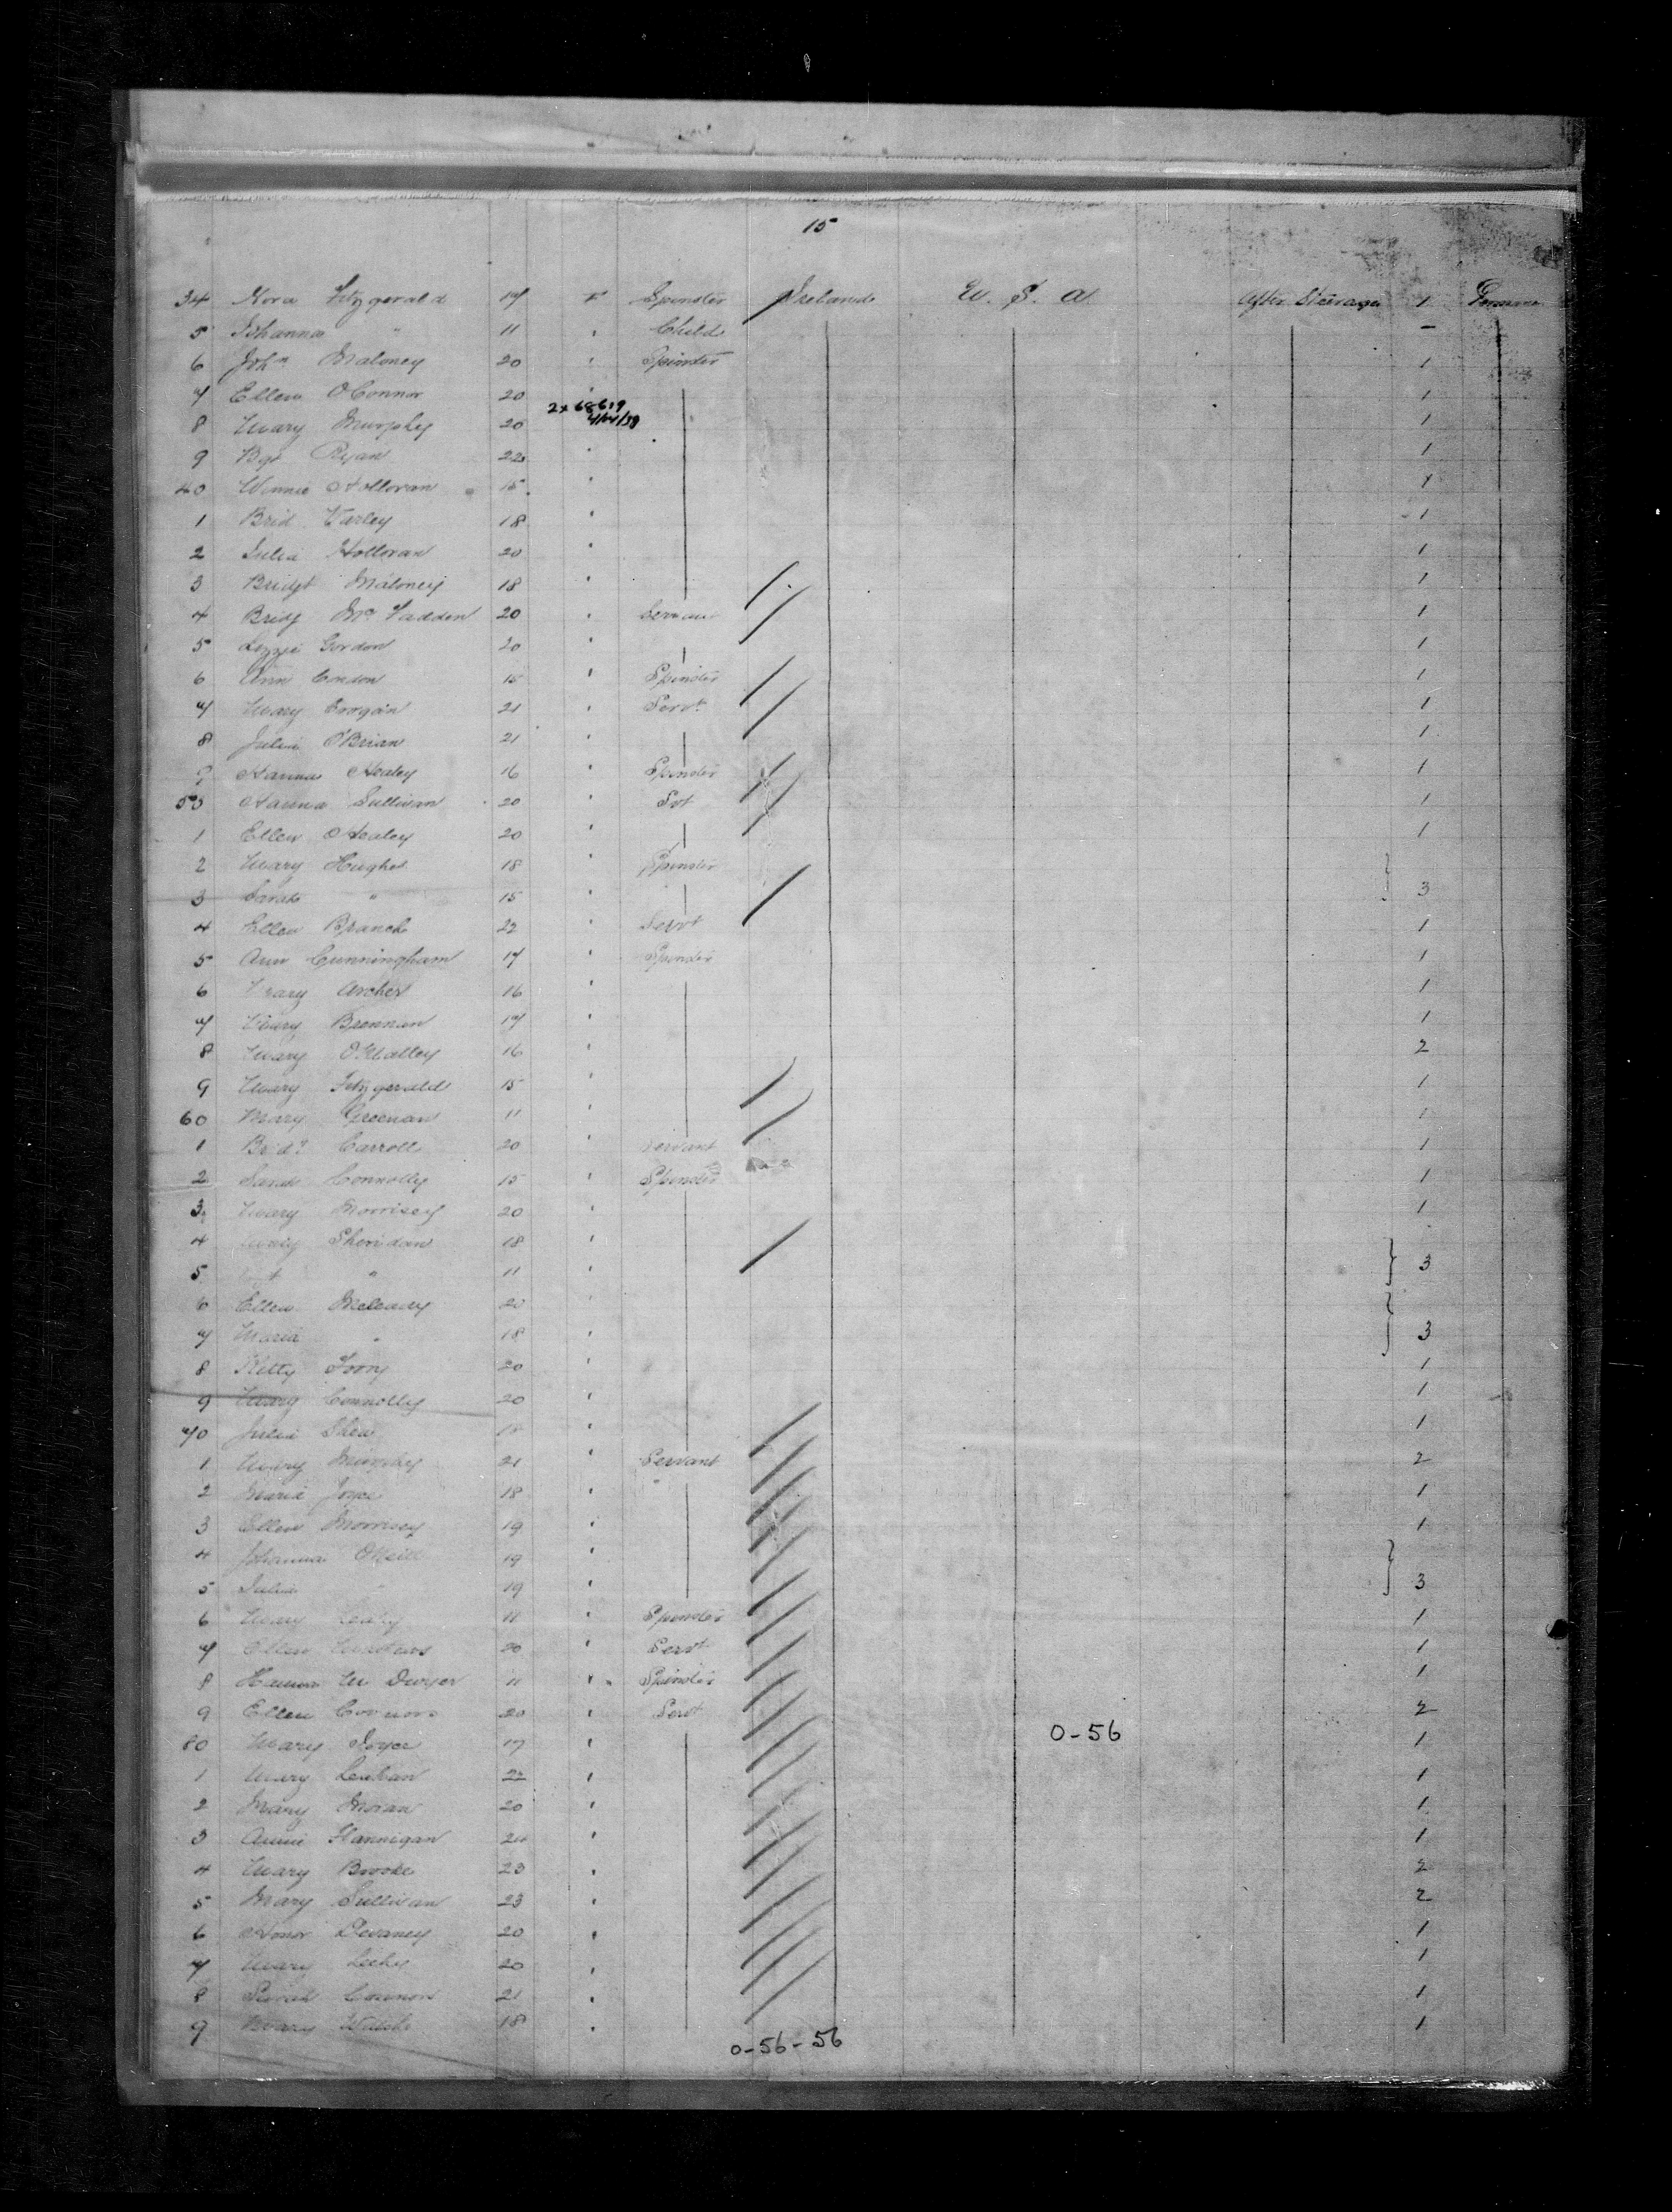 15
34 Nora Fitzgerald 17 F Spinster Ireland U. S. A After Steerage 1
5 Johanna " 11 " Child –
6 Joha Maloney 20 " Spinster 1
7 Ellen OConnor 20 " 1
2x 68619
8 Mary Murphy 20 1
9 Bgt Ryan 22 " 1
40 Winnie Holloran 15 " 1
1 Brid Varley 18 " 1
2 Julia Holloran 20 " 1
3 Bridgt Maloney 18 " 1
4 Bridg Mc Fadden 20 " Servant 1
5 Lizzie Gordon 20 " 1
6 Ann Condon 15 " Spinster 1
7 Mary Grogan 21 " Servt 1
8 Julia O'Brian 21 " 1
9 Hanna Healey 16 " Spinster 1
50 Hanna Sullivan 20 " Svt 1
1 Ellen Healey 20 " 1
2 Mary Hughes 18 " Spinster
3 Sarah " 15 " } 3
4 Ellen Branch 22 " Servt 1
5 Ann Cunningham 17 " Spinster 1
6 Mary Archer 16 " 1
7 Mary Brennan 17 " 1
8 Mary OMalley 16 " 2
9 Mary Fitzgerald 15 " 1
60 Mary Greenan 11 " 1
1 Bridt Carroll 20 " Servant 1
2 Sarah Connolly 15 " Spinster 1
3 Mary Morrisey 20 " 1
4 Mary Sheridan 18 "
5 " 11 " } 3
6 Ellen 20 "
7 Maria " 18 " } 3
8 Kitty 20 " 1
9 Mary Connolly 20 " 1
70 Julia Shea 18 " 1
1 Mary Murphy 21 " Servant 2
2 Maria Joyce 18 " " 1
3 Ellen Morrisey 19 " 1
4 Johanna ONeill 19 "
5 Julia " 19 " } 3
6 Mary 11 " Spinster 1
7 Ellen 20 " Servt 1
8 Hanna M Dwyer 11 " Spinster 1
9 Ellen Connors 20 " Servt 2
0-56
80 Mary Joyce 17 " 1
1 Mary Lenhan 22 " 1
2 Mary Moran 20 " 1
3 Annie Flannigan 24 " 1
4 Mary Brooke 23 " 2
5 Mary Sullivan 23 " 2
6 Honor Devaney 20 " 1
7 Mary 20 " 1
8 Connors 21 " 1
9 Mary Walsh 18 " 1
0-56-56